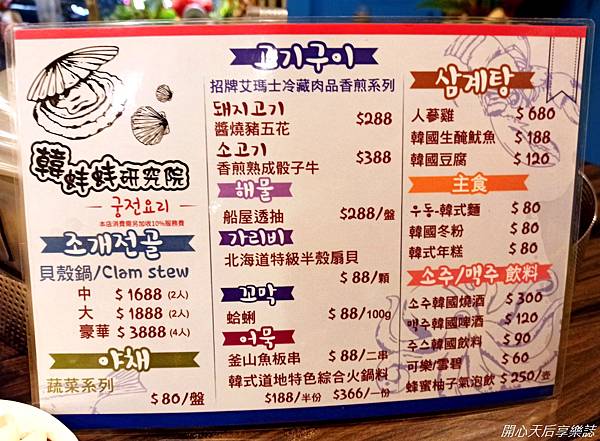 韓蚌蚌研究院
궁전요리
本店消費需另加收10%服務費
조개전골
貝殼鍋/Clam stew
中 $1688 (2人)
大 $1888 (2人)
豪華 $3888 (4人)
야채
蔬菜系列
$80/盤
고기구이
招牌艾瑪士冷藏肉品香煎系列
돼지고기
醬燒豬五花 $288
소고기
香煎熟成骰子牛 $388
해물
船屋透抽 $288/盤
가리비
北海道特級半殼扇貝
$88/顆
꼬막
蛤蜊 $88/100g
어묵
釜山魚板串 $88/二串
韓式道地特色綜合火鍋料
$188/半份 $366/一份
삼계탕
人蔘雞 $680
韓國生醃魷魚 $188
韓國豆腐 $120
主食
우동-韓式麵 $80
韓國冬粉 $80
韓式年糕 $80
소주/맥주 飲料
소주韓國燒酒 $300
맥주韓國啤酒 $120
주스韓國飲料 $90
可樂/雪碧 $60
蜂蜜柚子氣泡飲 $250/壺
開心天后享樂誌